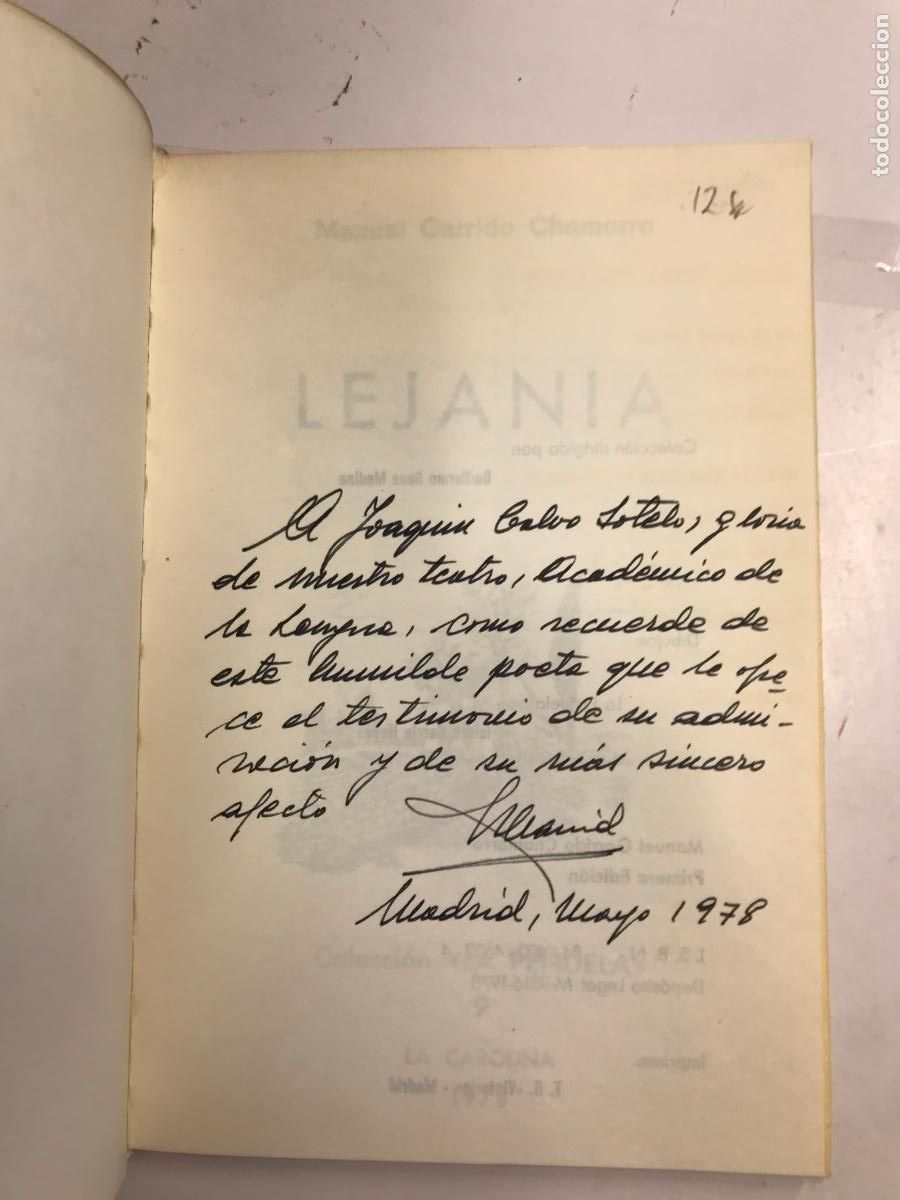 todocoleccion
12
Manuel Garrido Chamorro
LEJANIA
Colección dirigida por:
Guillermo Sena Medina
A Joaquin Calvo Sotelo, gloria
de nuestro teatro, Académico de
la Lengua, como recuerdo de
este humilde poeta que le ofre-
ce el testimonio de su admi-
ración y de su más sincero
afecto
Madrid, Mayo 1978
Manuel Garrido Chamorro
Primera Edición
I. S. B. N.
Colección
Depósito Legal M
1978
9
LA CAROLINA
Imprime:
T. G. Victoria - Madrid